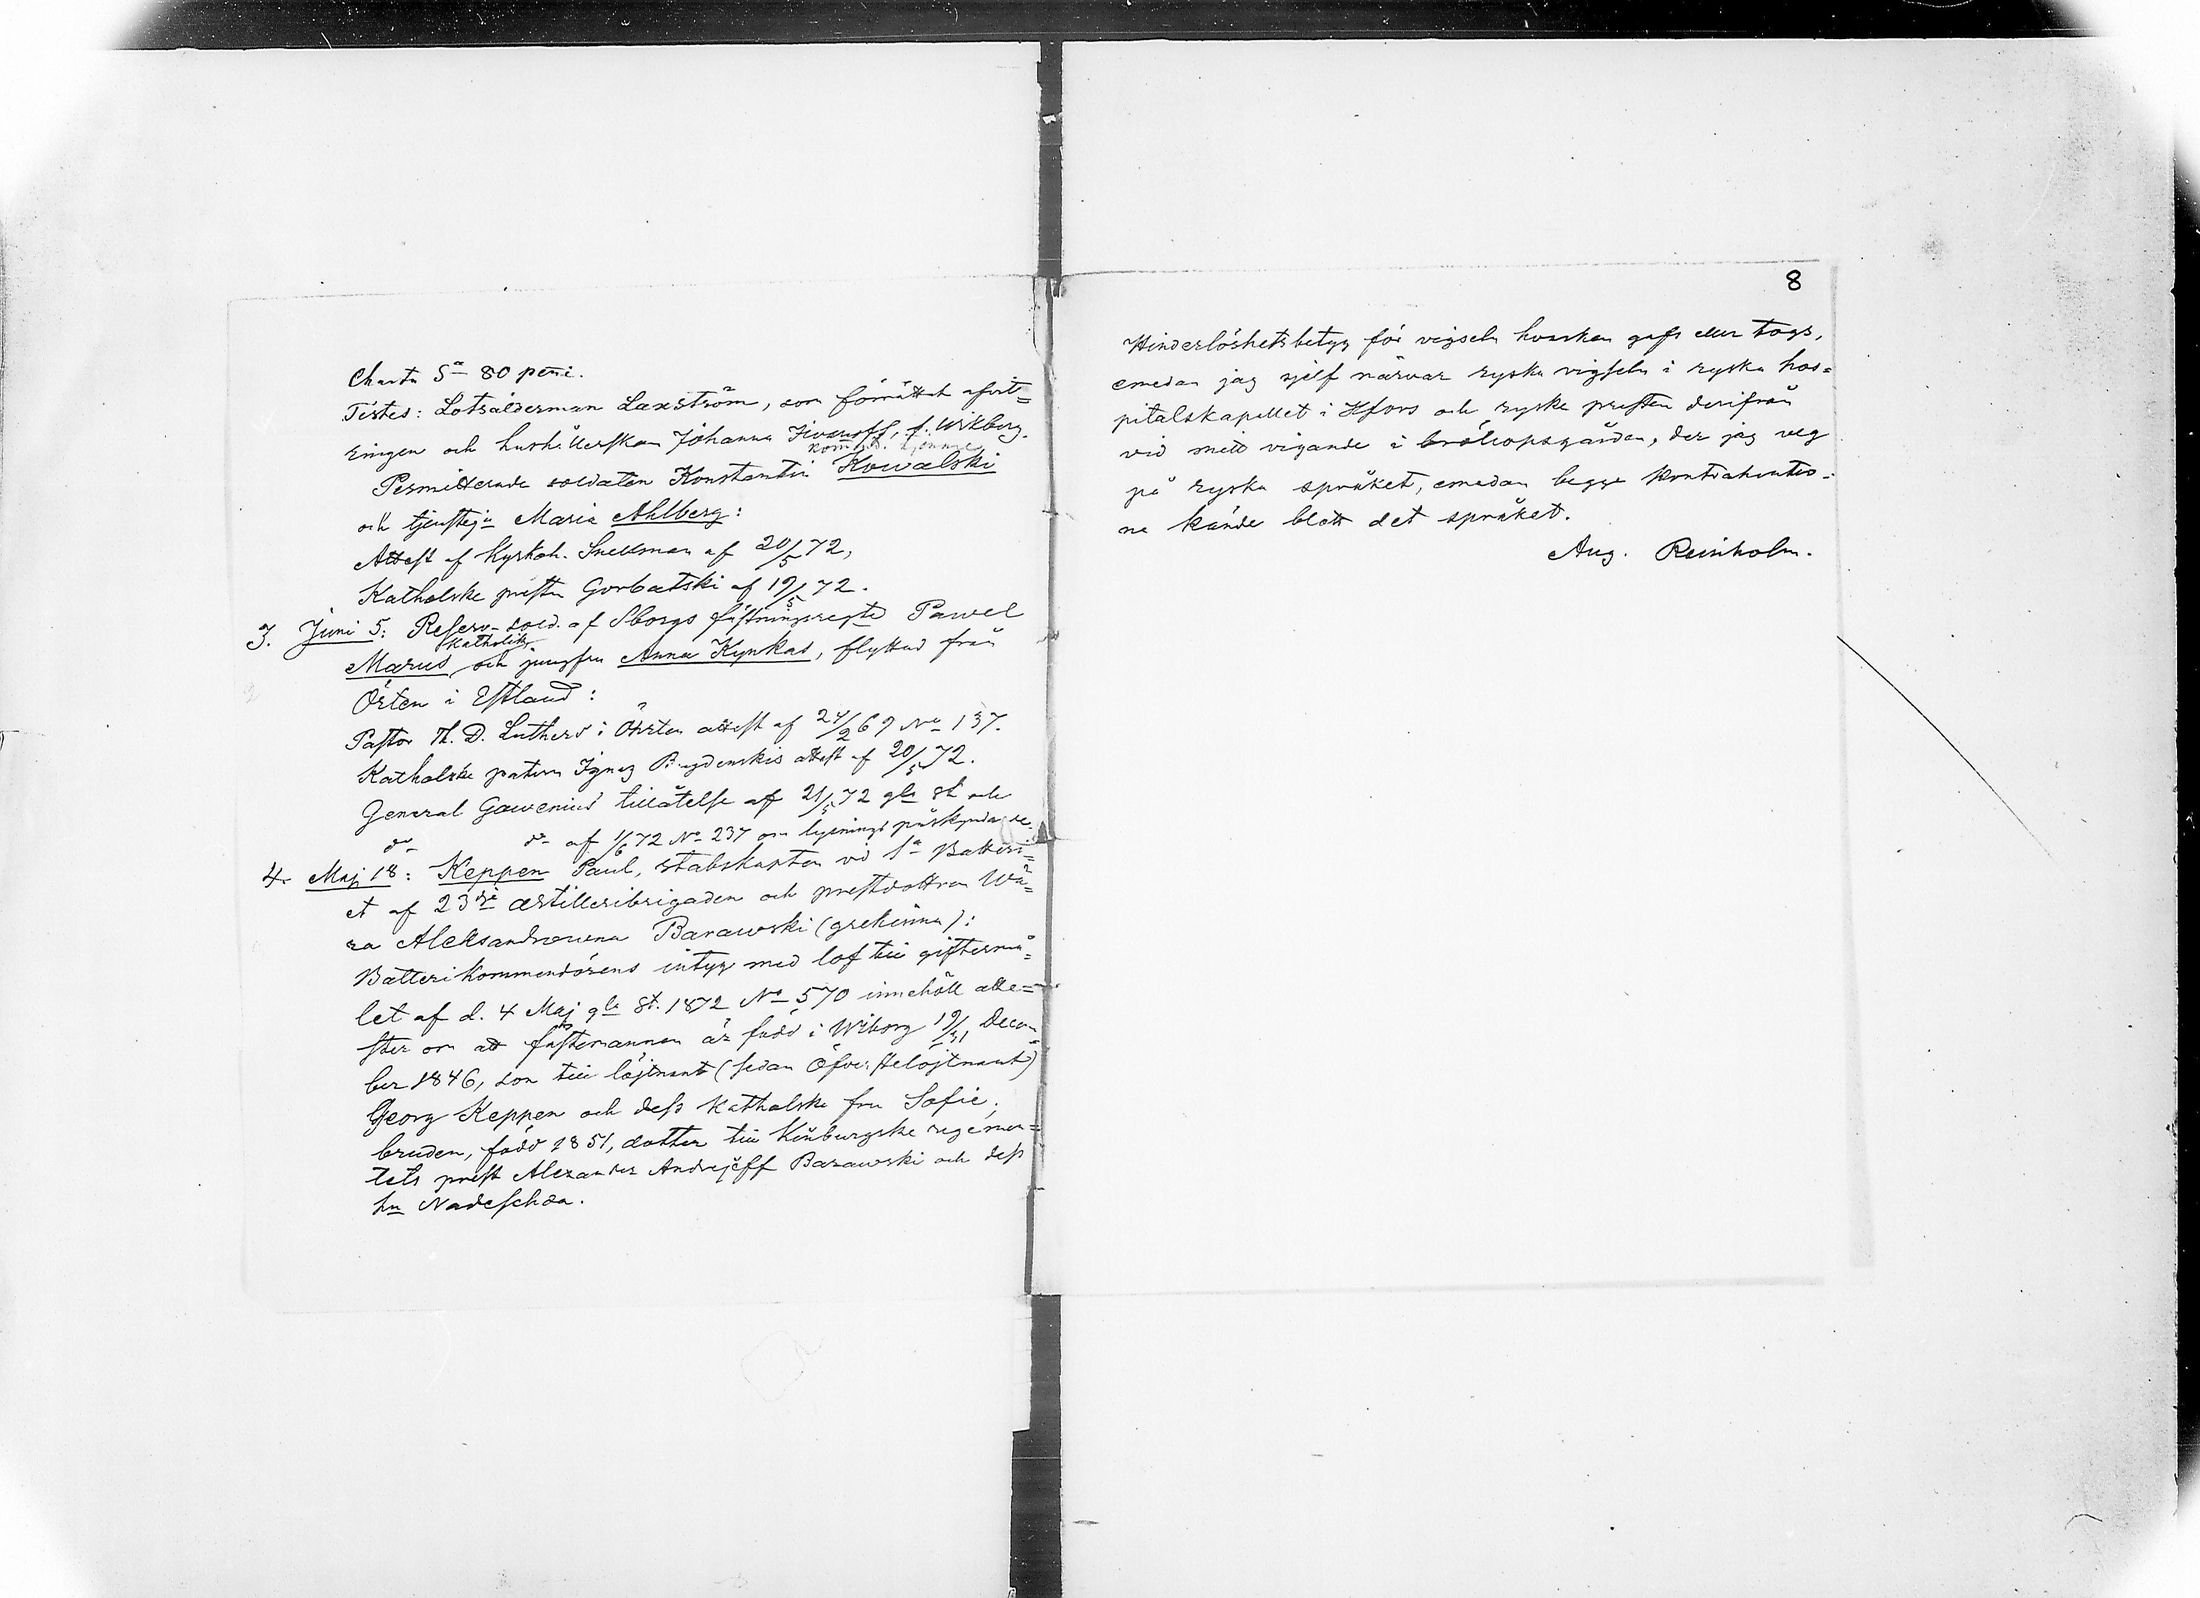 Charta Sa 80 peni.
Testes: Lotsålderman Laxström, som förrättat afvit=
ringen och hushållerskan Johanna Iivanoff, f. Wikberg.
Permitterade soldaten Konstantin Kowalski
och tjenstepn Maria Ahlberg:
Attest af Kyrkoh. Snellman af 20/5 72,
Katholske presten Gorbatski af 19/5 72.
3. Juni 5: Reserv-sold. af Sborgs fästningsregte Pawel
katholik
Marus och jungfru Anna Kynkas, flyttad från
Örten i Estland:
Pastor Th. D. Luthers i Öhrten attest af 24/2 69 No 137.
Katholske patern Ignaz attest af 20/5 72.
General Gawenius tillåtelse af 21/5 72 gla st och
do do af 1/6 72 No 237 om lysnings påskyndande.
4. Maj 18: Keppen Paul, stabskapten vid 1a Batteri=
et af 23dje artilleribrigaden och prestdottren Wä=
ra Aleksandrowna Barawski (grekinna):
Batterikommendörens intyg med lof till giftermå=
let af d. 4 Maj gla St. 1872 No 570 innehöll atte=
ster om att fästemannen är född i Wiborg 19/31 Decem=
ber 1846, son till löjtnant (sedan Öfverstelöjtnant)
Georg Keppen och dess katholska fru Sofie;
bruden, född 1851, dotter till Kinburgske regemen=
tets prest Alexander Andrejeff Barawski och dess
hu Nadeschda.
8
Hinderlöshetsbetyg för vigseln hvarken gafs eller togs,
emedan jag sjelf närvar ryska vigseln i ryska hos=
pitalskapellet i Hfors och ryske presten derifrån
vid mitt vigande i bröllopsgården, der jag veg
på ryska språket, emedan begge kontrahenter=
na kände blott det språket.
Aug. Reinholm.